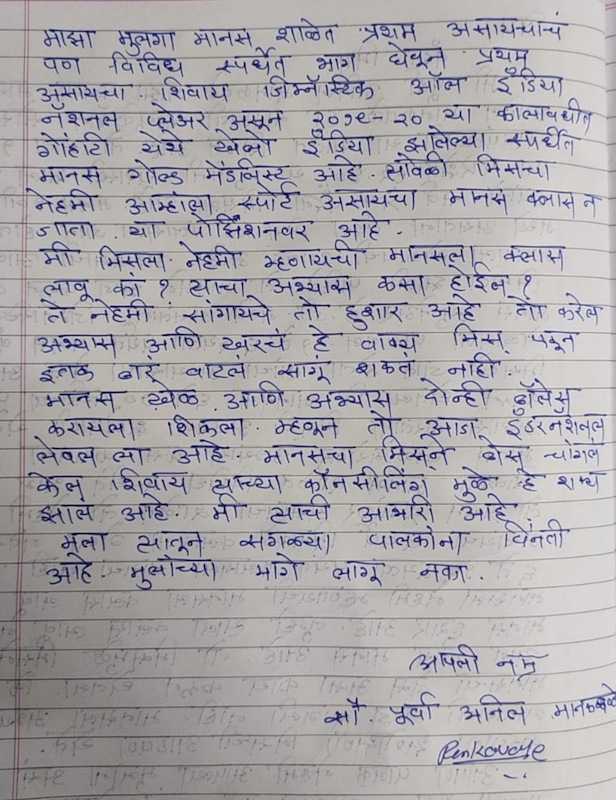 माझा मुलगा मानस शाळेत प्रथम असायचाच
पण विविध स्पर्धेत भाग घेवून प्रथम
असायचा. शिवाय जिम्नॅस्टिक ऑल इंडिया
नॅशनल प्लेअर असून २०१९-२० या कालावधीत
गोहाटी येथे खेलो इंडिया झालेल्या स्पर्धेत
मानस गोल्ड मेडलिस्ट आहे. मिसचा
नेहमी आम्हाला स्पोर्ट असायचा मानस क्लास न
जाता या पोझिशनवर आहे.
मी मिसला नेहमी म्हणायची मानसला क्लास
लावू का? त्याचा अभ्यास कसा होईल?
ते नेहमी सांगायचे तो हुशार आहे तो करेल
अभ्यास आणि खरचं हे वाक्य मिस कडून
इतकं बरं वाटलं सांगू शकत नाही.
मानस खेळ आणि अभ्यास दोन्ही बॅलेंस
करायला शिकला म्हणून तो आज इंटरनॅशनल
लेवल ला आहे मानसचा मिसने बेस चांगलं
केलं शिवाय त्यांच्या कॉन्सीलिंग मुळे हे शक्य
झालं आहे. मी त्यांची आभारी आहे
मला त्यातून सगळ्या पालकांना विनंती
आहे मुलांच्या मागे लागू नका.
आपली नम्र
सौ. पूर्वा अनिल